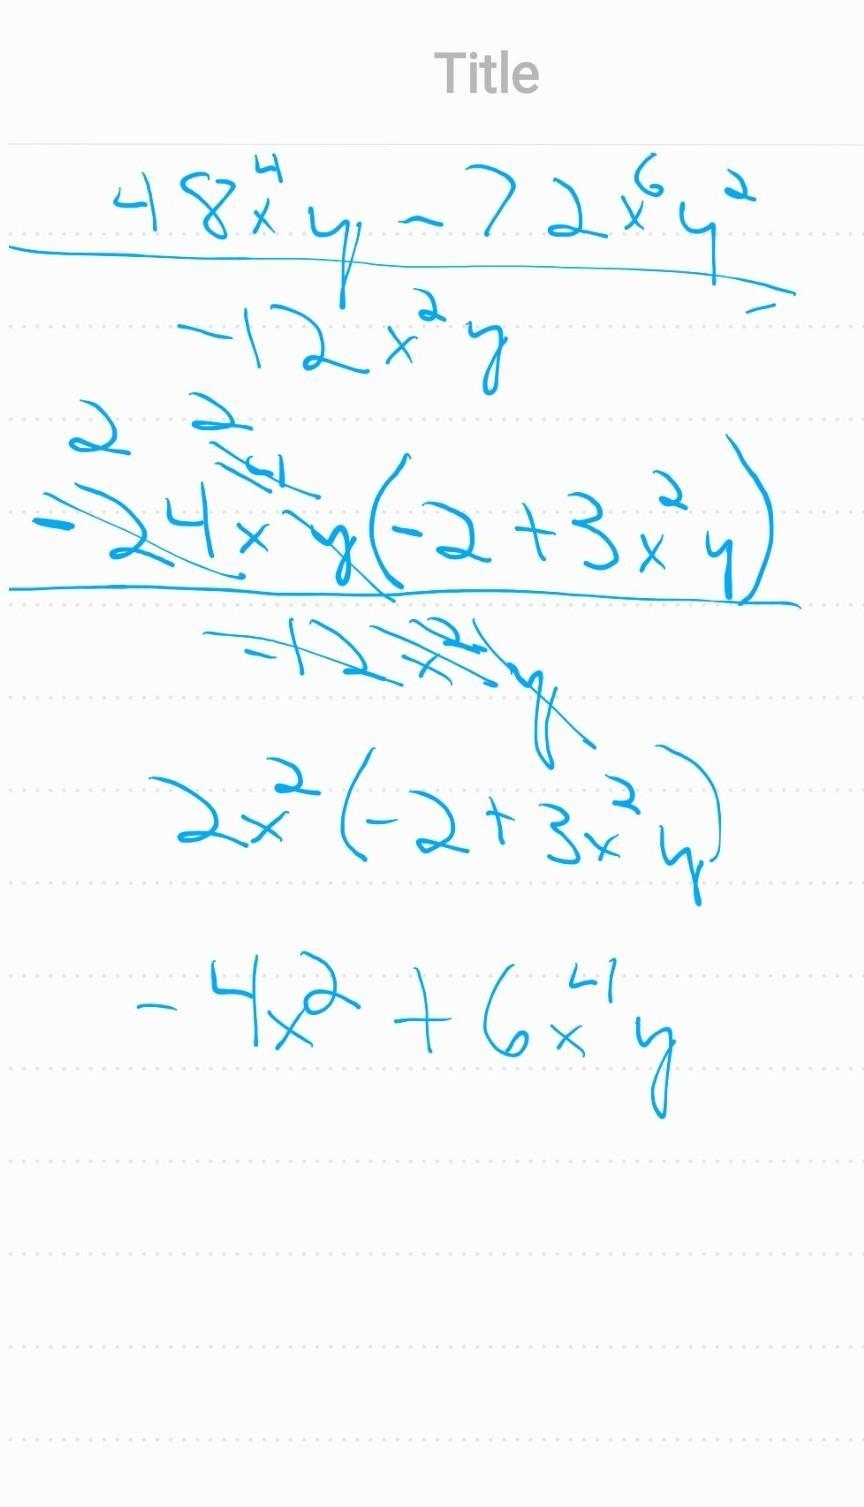 Title
48x⁴y - 72x⁶y²
-12x²y =
2 2
-24x⁴y(-2 + 3x²y)
-12x²y
2x²(-2 + 3x²y)
-4x² + 6x⁴y